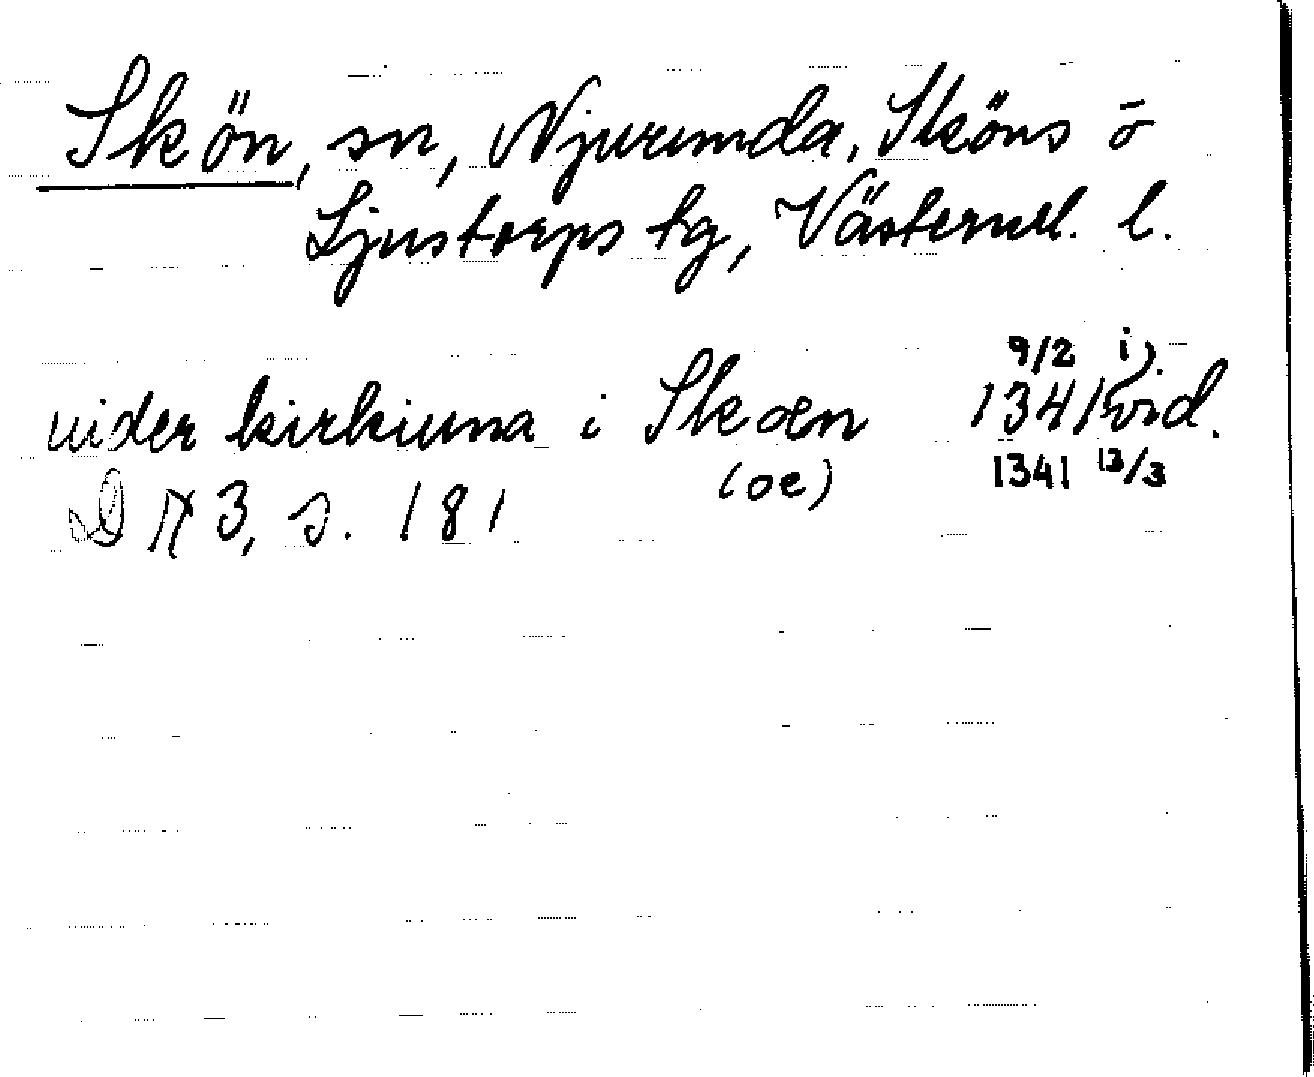 Skön, sn, Njurunda, Sköns o
Ljustorps tg, Västernrl. l.
uider kirkiuna i Skøn 9/2 1341 i) vid.
(oe) 1341 13/3
DN 3, s. 181